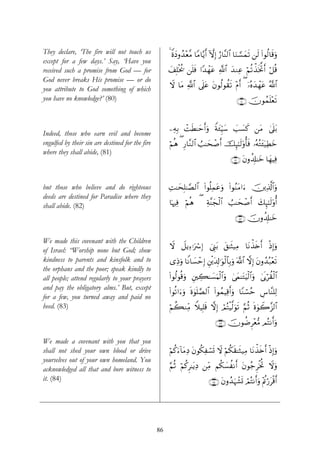 They declare, 'The fire will not touch us
except for a few days.' Say, 'Have you
received such a promise from God — for
God never breaks His promise — or do
you attribute to God something of which
you have no knowledge?' (80)
وَقَالُوا۟ لَن تَمَسَّنَا ٱلنَّارُ إِلَّآ أَيَّامًا مَّعْدُودَةً ۚ
قُلْ أَتَّخَذْتُمْ عِندَ ٱللَّهِ عَهْدًا فَلَن يُخْلِفَ
ٱللَّهُ عَهْدَهُۥٓ ۖ أَمْ تَقُولُونَ عَلَى ٱللَّهِ مَا لَا
تَعْلَمُونَ ﴿٨٠﴾
Indeed, those who earn evil and become
engulfed by their sin are destined for the fire
where they shall abide, (81)
بَلَىٰ مَن كَسَبَ سَيِّئَةً وَأَحَٰطَتْ بِهِۦ
خَطِيٓـَٔتُهُۥ فَأُو۟لَٰٓئِكَ أَصْحَٰبُ ٱلنَّارِ ۖ هُمْ
فِيهَا خَٰلِدُونَ ﴿٨١﴾
but those who believe and do righteous
deeds are destined for Paradise where they
shall abide. (82)
وَٱلَّذِينَ ءَامَنُوا۟ وَعَمِلُوا۟ ٱلصَّٰلِحَٰتِ
أُو۟لَٰٓئِكَ أَصْحَٰبُ ٱلْجَنَّةِ ۖ هُمْ فِيهَا
خَٰلِدُونَ ﴿٨٢﴾
We made this covenant with the Children
of Israel: 'Worship none but God; show
kindness to parents and kinsfolk and to
the orphans and the poor; speak kindly to
all people; attend regularly to your prayers
and pay the obligatory alms.' But, except
for a few, you turned away and paid no
heed. (83)
وَإِذْ أَخَذْنَا مِيثَٰقَ بَنِىٓ إِسْرَٰٓءِيلَ لَا
تَعْبُدُونَ إِلَّا ٱللَّهَ وَبِٱلْوَٰلِدَيْنِ إِحْسَانًا وَذِى
ٱلْقُرْبَىٰ وَٱلْيَتَٰمَىٰ وَٱلْمَسَٰكِينِ وَقُولُوا۟
لِلنَّاسِ حُسْنًا وَأَقِيمُوا۟ ٱلصَّلَوٰةَ وَءَاتُوا۟
ٱلزَّكَوٰةَ ثُمَّ تَوَلَّيْتُمْ إِلَّا قَلِيلًا مِّنكُمْ
وَأَنتُم مُّعْرِضُونَ ﴿٨٣﴾
We made a covenant with you that you
shall not shed your own blood or drive
yourselves out of your own homeland. You
acknowledged all that and bore witness to
it. (84)
وَإِذْ أَخَذْنَا مِيثَٰقَكُمْ لَا تَسْفِكُونَ دِمَآءَكُمْ
وَلَا تُخْرِجُونَ أَنفُسَكُم مِّن دِيَٰرِكُمْ ثُمَّ
أَقْرَرْتُمْ وَأَنتُمْ تَشْهَدُونَ ﴿٨٤﴾
86